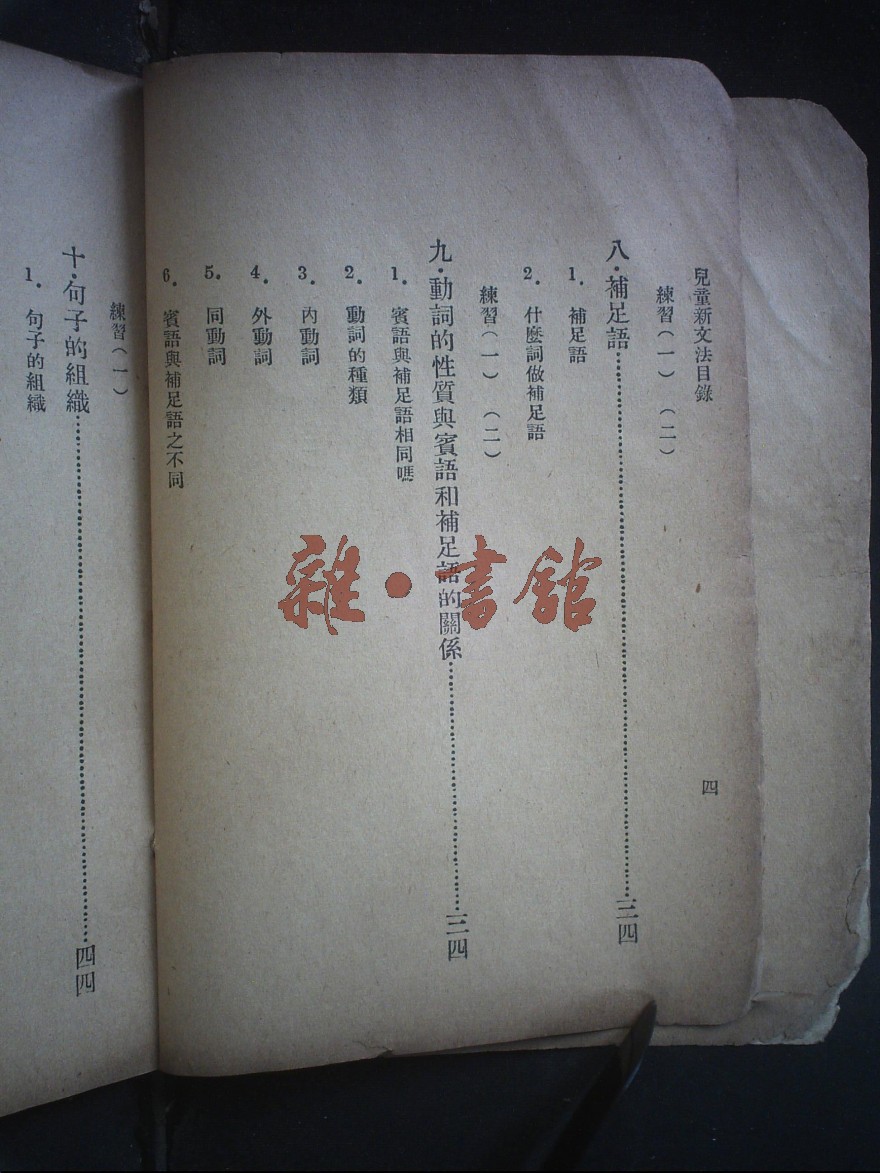 兒童新文法目錄
四
練習(一) (二)
八·補足語……三四
1. 補足語
2. 什麼詞做補足語
練習(一) (二)
九·動詞的性質與賓語和補足語的關係……三四
1. 賓語與補足語相同嗎
2. 動詞的種類
3. 內動詞
4. 外動詞
5. 同動詞
6. 賓語與補足語之不同
練習(一)
十·句子的組織……四四
1. 句子的組織
雜·書館